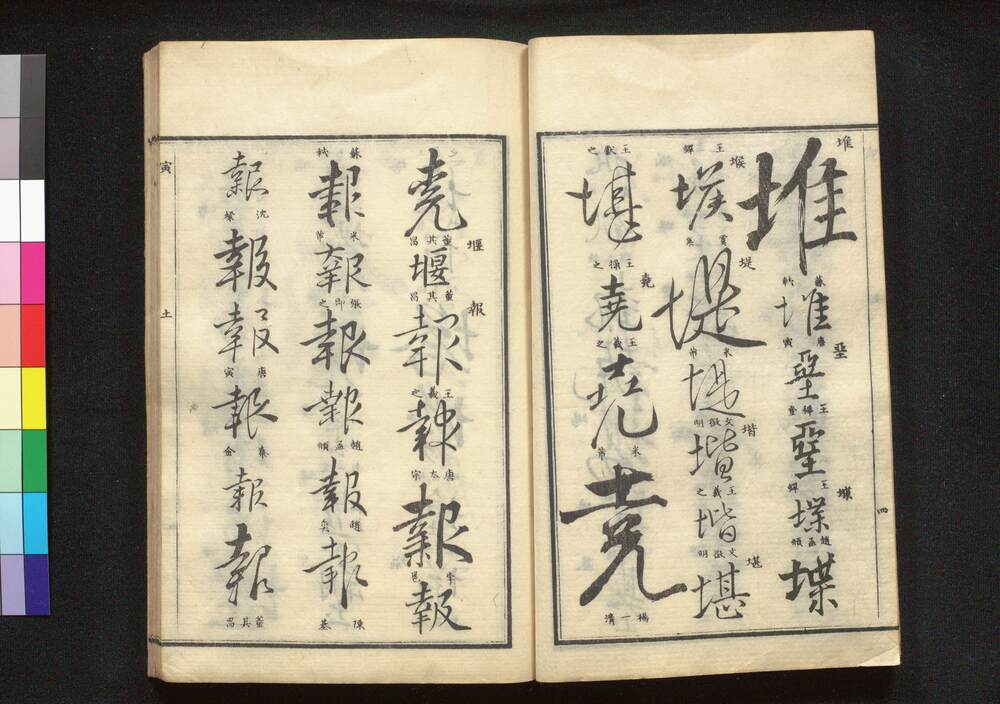 堆 堆
蘇軾 堆
唐寅 堊 堊
王鐸 堊
王鐸 堞 堞
趙孟頫 堞
王鐸 堠 堠
堤 堤
米芾 堤
文徵明 堦 堦
王羲之 堦
文徵明 堪 堪
王獻之 堪
王操之 堯 堯
王羲之 堯
米芾 堯
楊一清
四
堯
董其昌 堰 堰
董其昌 報 報
王羲之 報
唐太宗 報
李邕 報
蘇軾 報
米芾 報
張即之 報
報
趙孟頫 報
趙奕 報
陳基
報
沈粲 報
報
唐寅 報
報
報
董其昌
寅
土